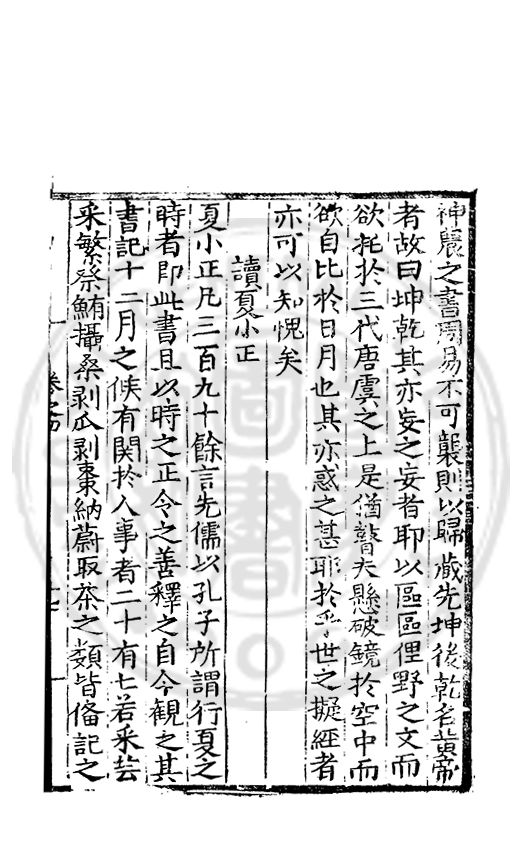 神農之書周易不可襲則以歸藏先坤後乾名黃帝
者故曰坤乾其亦妄之妄者耶以區區俚野之文而
欲托於三代唐虞之上是猶瞽夫懸破鏡於空中而
欲自比於日月也其亦惑之甚耶於乎世之擬經者
亦可以知愧矣
讀夏小正
夏小正凡三百九十餘言先儒以孔子所謂行夏之
時者即此書且以時之正令之善釋之自今觀之其
書記十二月之候有関於人事者二十有七若采芸
采繁祭鮪攝桑剥瓜剥棗納蔚取荼之類皆俻記之